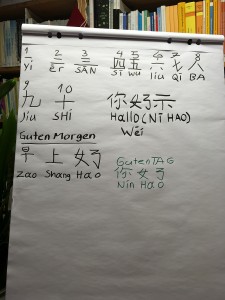 1 2 3 4 5 6 7 8
一 二 三 四 五 六 七 八
Yi Èr SĀN Sì wu liu Qī BA
9 10
九 十 你好示
Jiu SHí Hallo (Nǐ HAO)
Wěi
Guten Morgen
早 上 好
Zao Shang Hao
Guten TAG
你 好
Nin Hao